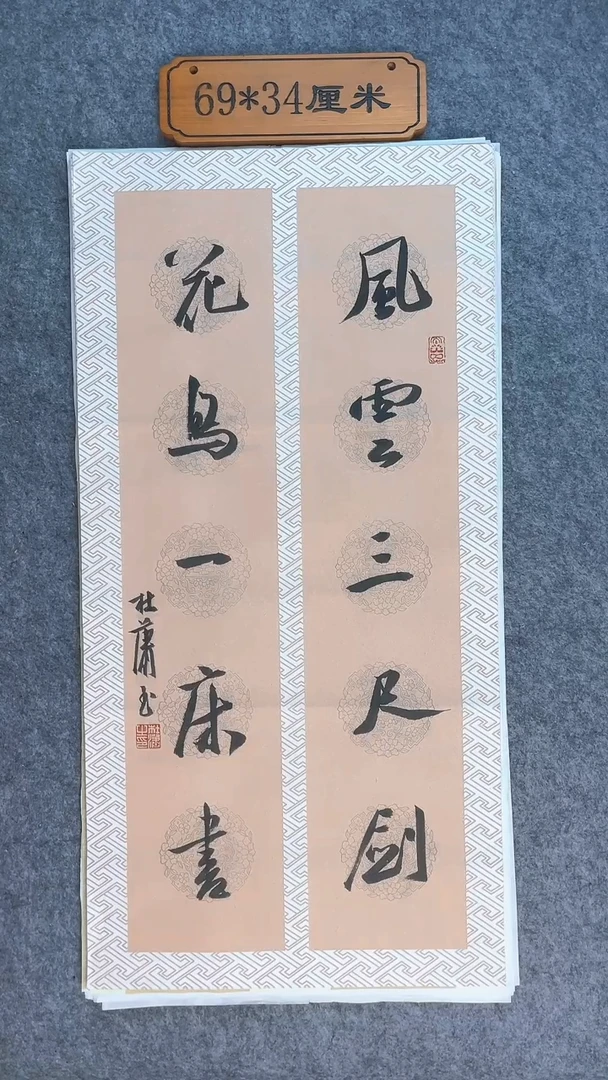 69*34厘米
風雲三尺剑
花鳥一床書
杜蕭书